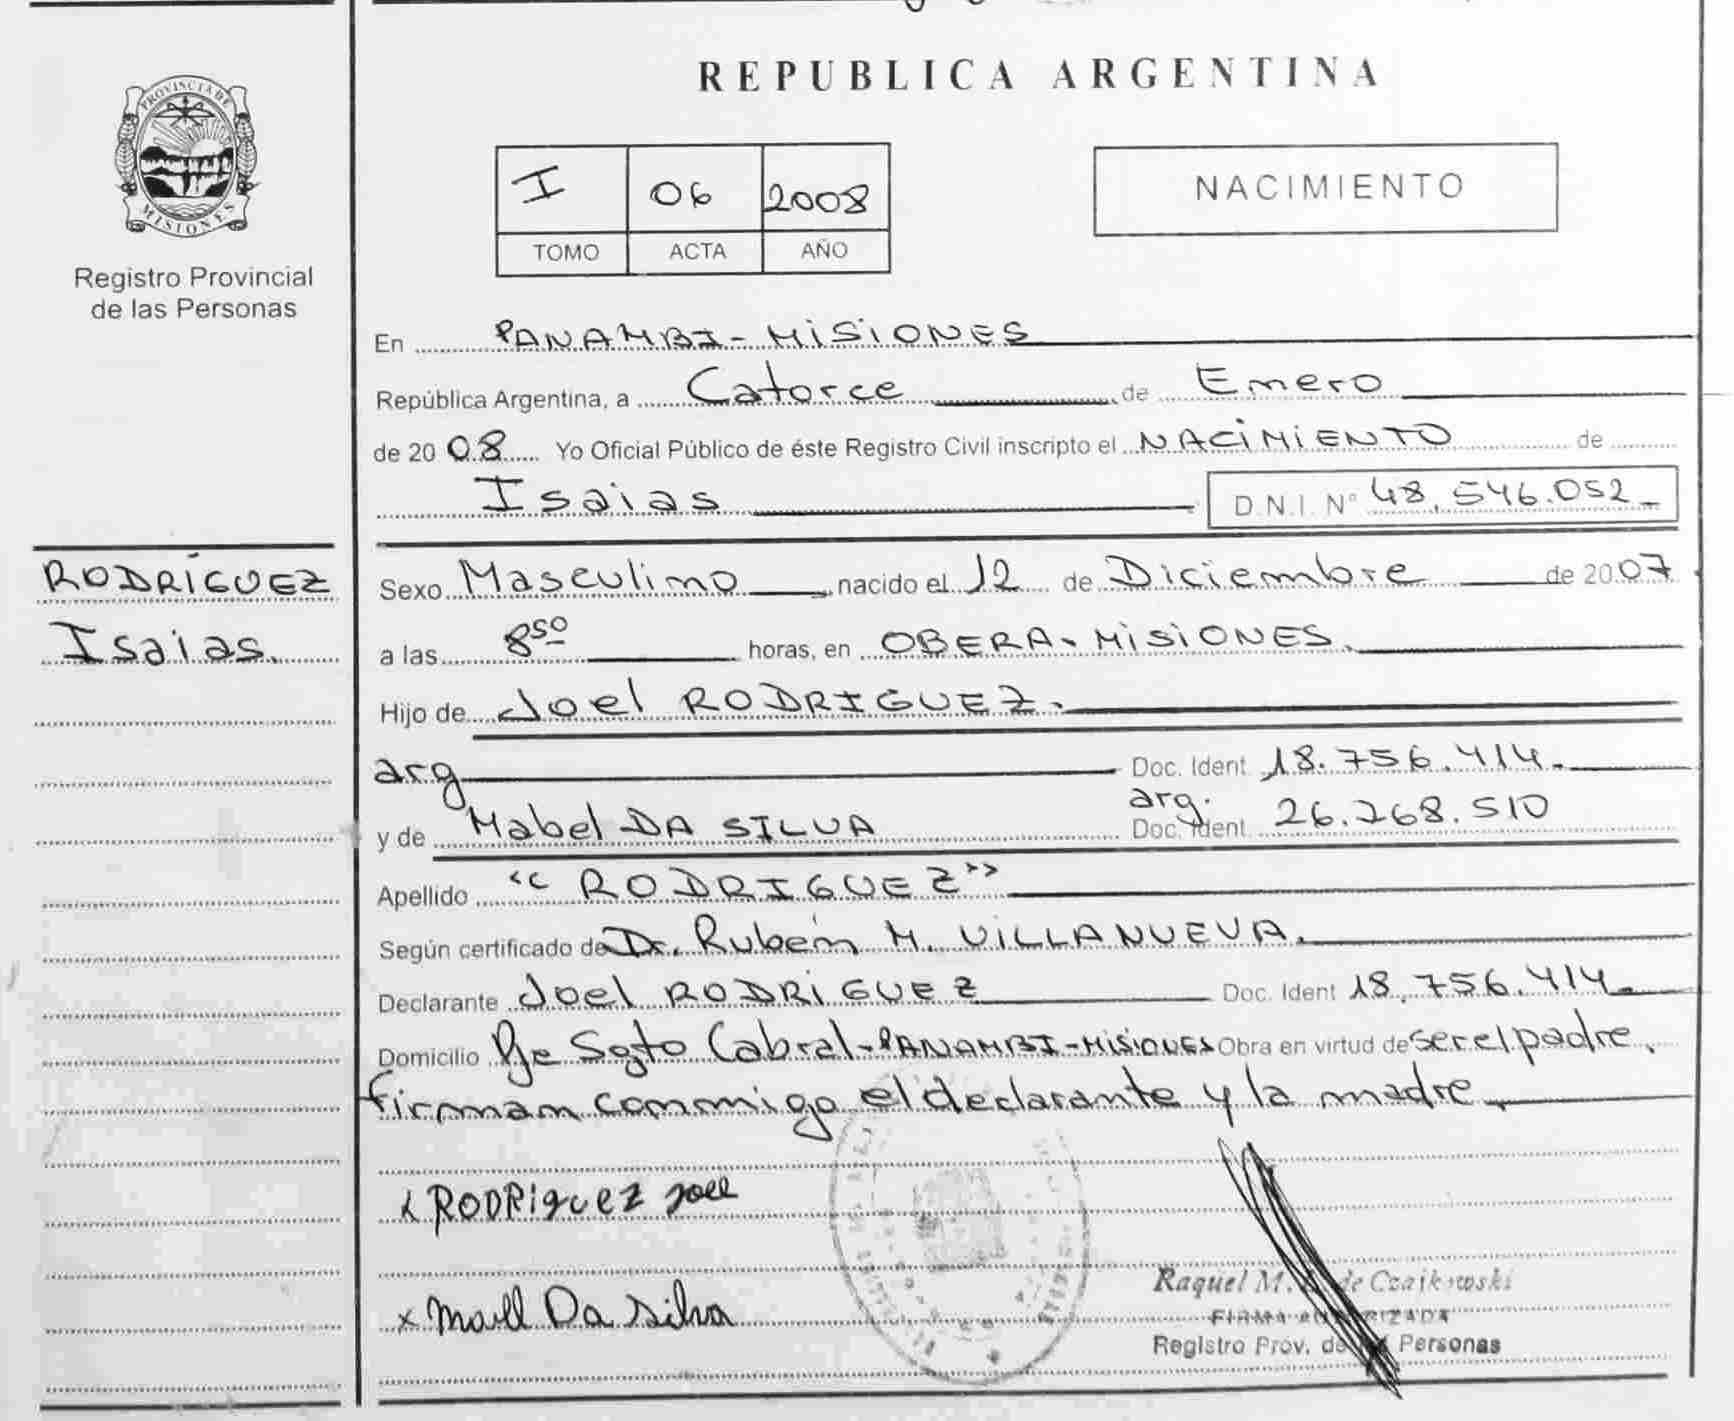 PROVINCIA DE
MISIONES
Registro Provincial
de las Personas
RODRÍGUEZ
Isaias.
REPUBLICA ARGENTINA
I 06 2008
TOMO ACTA AÑO
NACIMIENTO
En PANAMBI - MISIONES
República Argentina, a Catorce de Enero
de 2008 Yo Oficial Público de éste Registro Civil inscripto el NACIMIENTO de
Isaias D.N.I. N° 48.546.052
Sexo Masculino, nacido el 12 de Diciembre de 2007
a las 8⁵⁰ horas, en OBERA - MISIONES.
Hijo de Joel RODRIGUEZ.
arg Doc. Ident 18.756.414.
arg.
y de Mabel DA SILVA Doc. Ident. 26.268.510
Apellido "RODRIGUEZ"
Según certificado de Dr. Rubén M. VILLANUEVA.
Declarante Joel RODRIGUEZ Doc. Ident 18.756.414.
Domicilio Pje Sgto Cabral - PANAMBI - MISIONES Obra en virtud de ser el padre.
firman conmigo el declarante y la madre
x RODRIguEZ Joel
x Da Silva
Raquel M. de Czajkowski
FIRMA AUTORIZADA
Registro Prov. de las Personas